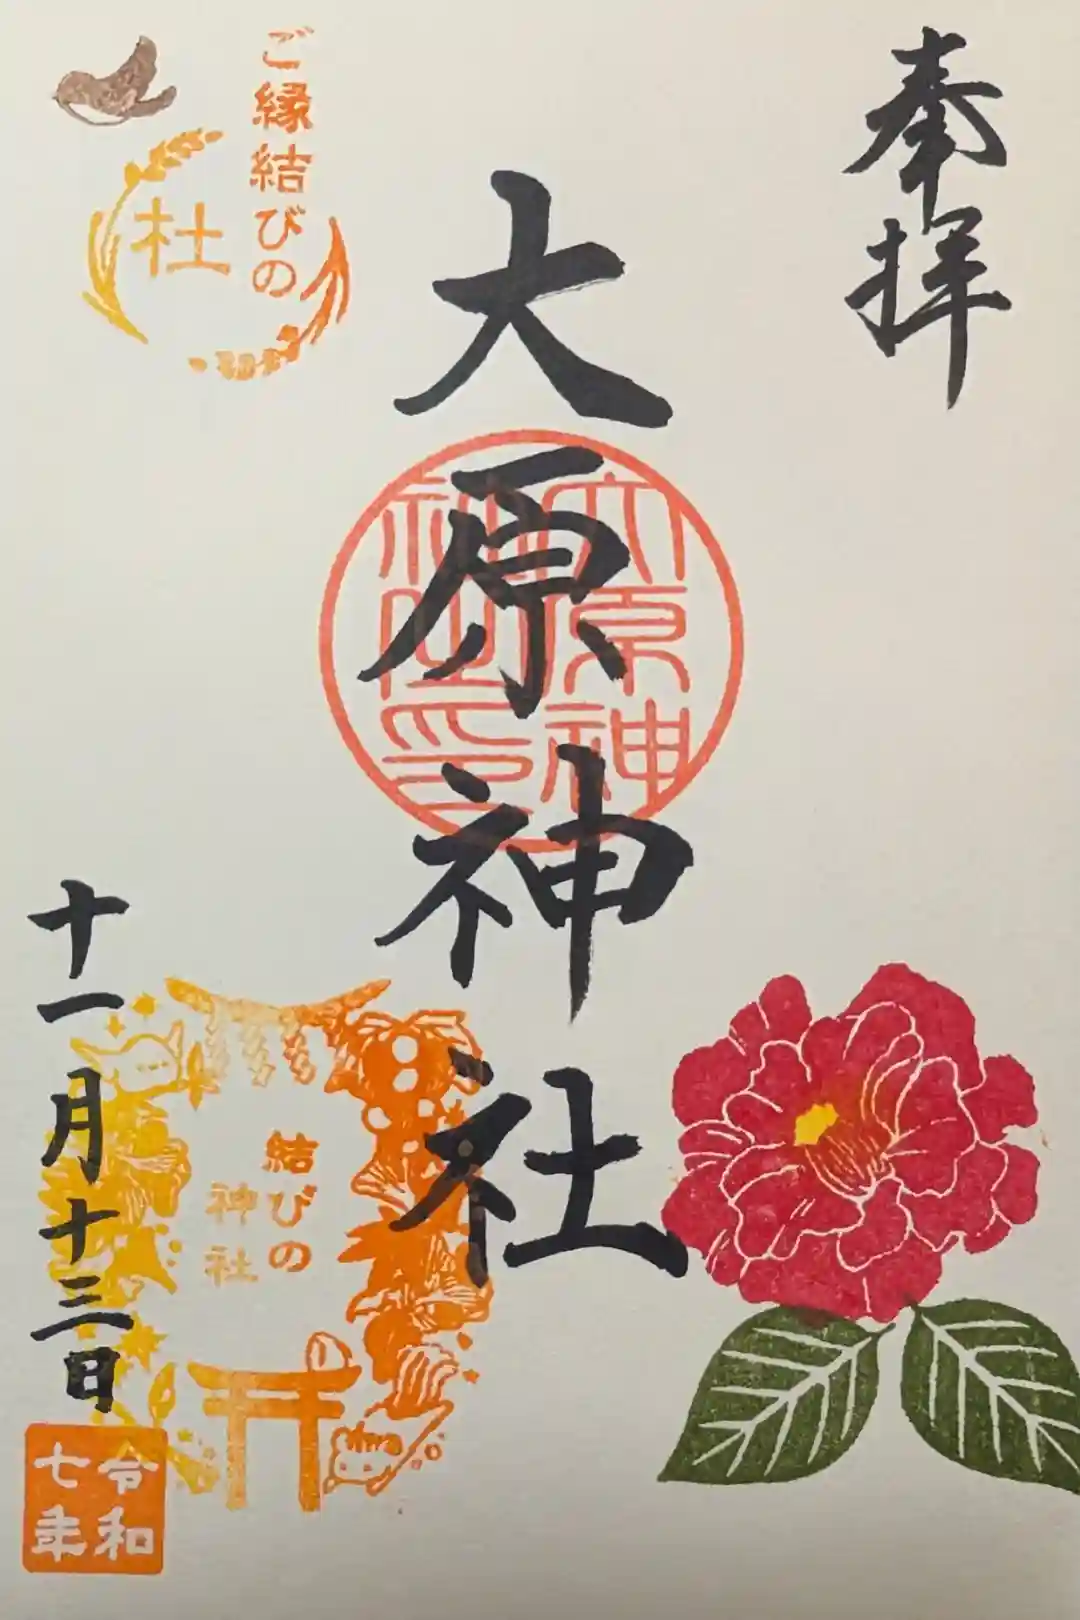 奉拝
大原神社
大原神
社印
ご縁結びの
杜
結びの
神社
十一月十三日
令和
七年